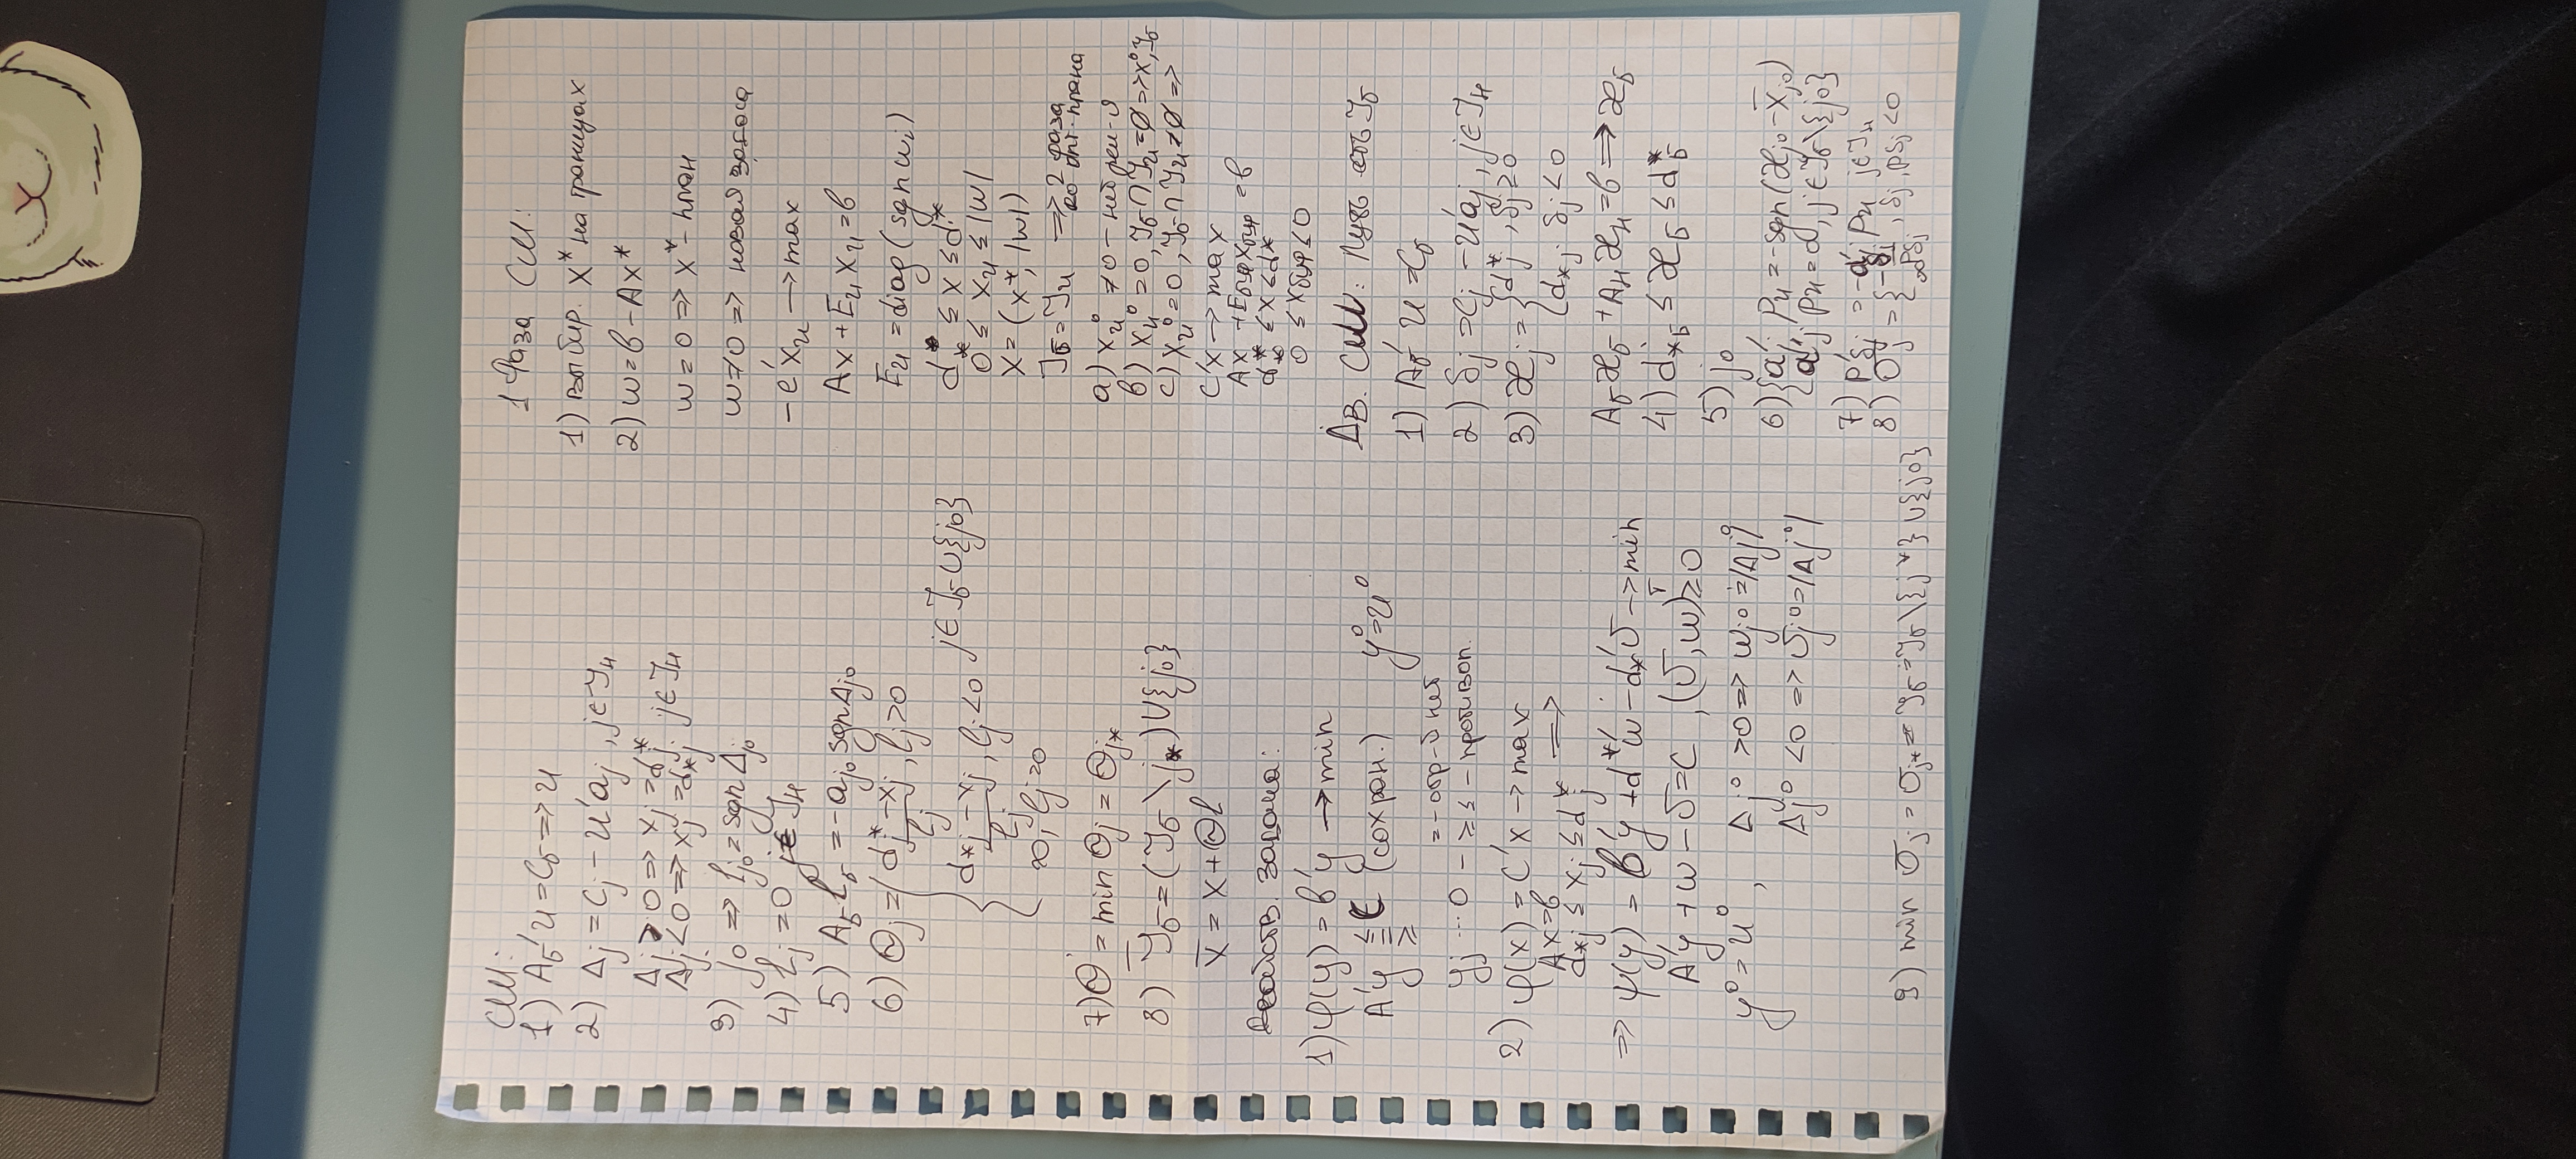 СМ:
1) A_б' u = C_б => u
2) Δj = Cj - u'aj, j∈J_н
Δj > 0 => xj = d*j
Δj < 0 => xj = d_*j j∈J_н
3) j₀ => l_j₀ = sgn Δ_j₀
4) lj = 0 j∈J_н
5) A_б l_б = -a_j₀ sgn Δ_j₀
6) Θj = { (d*j - xj)/lj, lj > 0
(d_*j - xj)/lj, lj < 0 j∈J_б∪{j₀}
∞, lj = 0
7) Θ = min Θj = Θ_j*
8) J̅_б = (J_б \ j*)∪{j₀}
x̅ = x + Θl
Двойств. задача:
1) φ(y) = b'y → min
A'y ≤ = ≥ C (сохран.) y⁰ = u⁰
= - огр-й нет
yj ... 0 - ≥ ≤ - противоп.
2) φ(x) = C'x → max
Ax = b
d_*j ≤ xj ≤ d*j =>
=> ψ(y) = b'y + d*'w - d_*'v → min
A'y + w - v = C, (v, w) ≥ 0
y⁰ = u⁰, Δj⁰ > 0 => wj⁰ = |Δj⁰|
Δj⁰ < 0 => vj⁰ = |Δj⁰|
9) min σj = σj* = J̅_б = J_б \ {j*} ∪ {j₀}
1 Фаза СМ:
1) выбир. x* на границах
2) w = b - Ax*
w = 0 => x* - план
w ≠ 0 => новая задача
-e'x_и → max
Ax + E_и x_и = b
E_и = diag(sgn wi)
d_* ≤ x ≤ d*
0 ≤ x_и ≤ |w|
x = (x*, |w|)
J_б = J_и => 2 фаза
до опт. плана
a) x_и⁰ ≠ 0 - нет реш-я
b) x_и⁰ = 0, J_б ∩ J_и = ∅ => x⁰, J_б
c) x_и⁰ = 0, J_б ∩ J_и ≠ ∅ =>
C'x → max
Ax + E_буф x_буф = b
d_* ≤ x ≤ d*
0 ≤ x_буф ≤ 0
Дв. СМ: Пусть есть J_б
1) A_б' u = C_б
2) δj = Cj - u'aj, j∈J_н
3) æj = { d*j, δj ≥ 0
d_*j δj < 0
A_б æ_б + A_н æ_н = b => æ_б
4) d_*б ≤ æ_б ≤ d*_б
5) j₀
6) { a'j₀ p_u = -sgn(æ_j₀ - x̅_j₀)
a'j p_u = 0, j∈J_б\{j₀}
7) p'δj = -a'j p_u j∈J_н
8) σj = { -δj/pδj, δj, pδj < 0
∞